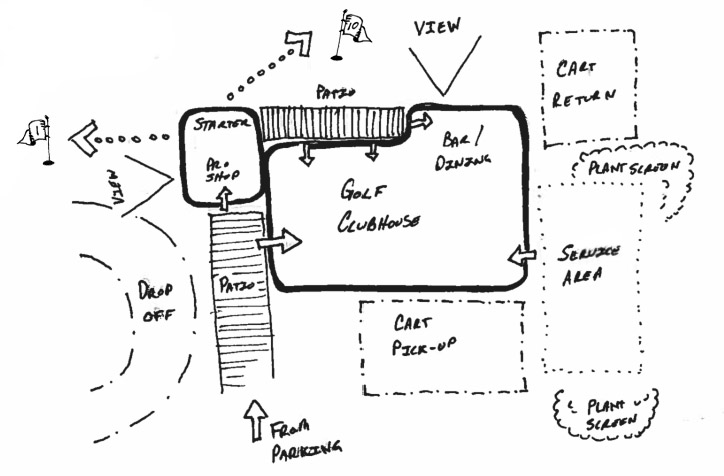 10
VIEW
CART
RETURN
PATIO
1
STARTER
BAR/
DINING
PRO
SHOP
PLANT SCREEN
VIEW
GOLF
CLUBHOUSE
SERVICE
AREA
DROP
OFF
PATIO
CART
PICK-UP
PLANT
SCREEN
FROM
PARKING